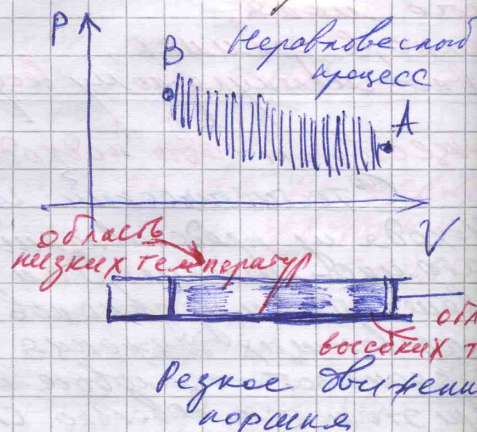 P
Неравновесный
процесс
B
A
V
область
низких температур
обл
высоких т
Резкое движени
поршня